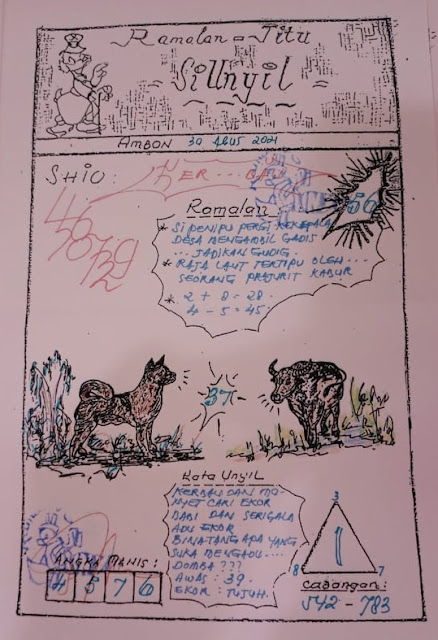 Ramalan - Jitu
SiUnyil
AMBON 30 AGUS 2021
SHIO:
KER... BAU
56
Ramalan
* SI PENIPU PERGI KEKEPALA
DESA MENGAMBIL GADIS
... JADIKAN GUNDIG.
* RAJA LAUT TERTIPU OLEH...
SEORANG PRAJURIT KABUR
* 2 + 8 = 28.
4 - 5 = 45.
37
Kata Unyil
KERBAU DAN MO-
NYET CARI EKOR
BABI DAN SERIGALA
ADU EKOR
BINATANG APA YANG
SUKA MENGADU....
DOMBA ???
AWAS : 39.
EKOR : TUJUH.
ANGKA MANIS:
4 5 7 6
3
1
8 7
Cadangan:
542 - 783